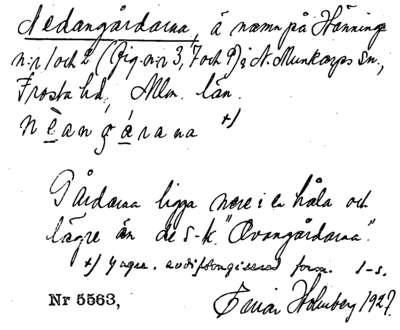 Nedangårdarna, ä namn på Hänninge
n:r 1 och 2 (fig. n:r 3, 7 och 9) i N. Munkarps Sn.,
Frosta hd, Mlm. län.
nèangárana +)
Gårdarna ligga nere i en håla och
lägre än de s-k. "Ovangårdarna".
+) yngre. form. 1-s.
Nr 5563, Einar Holmberg 1927.